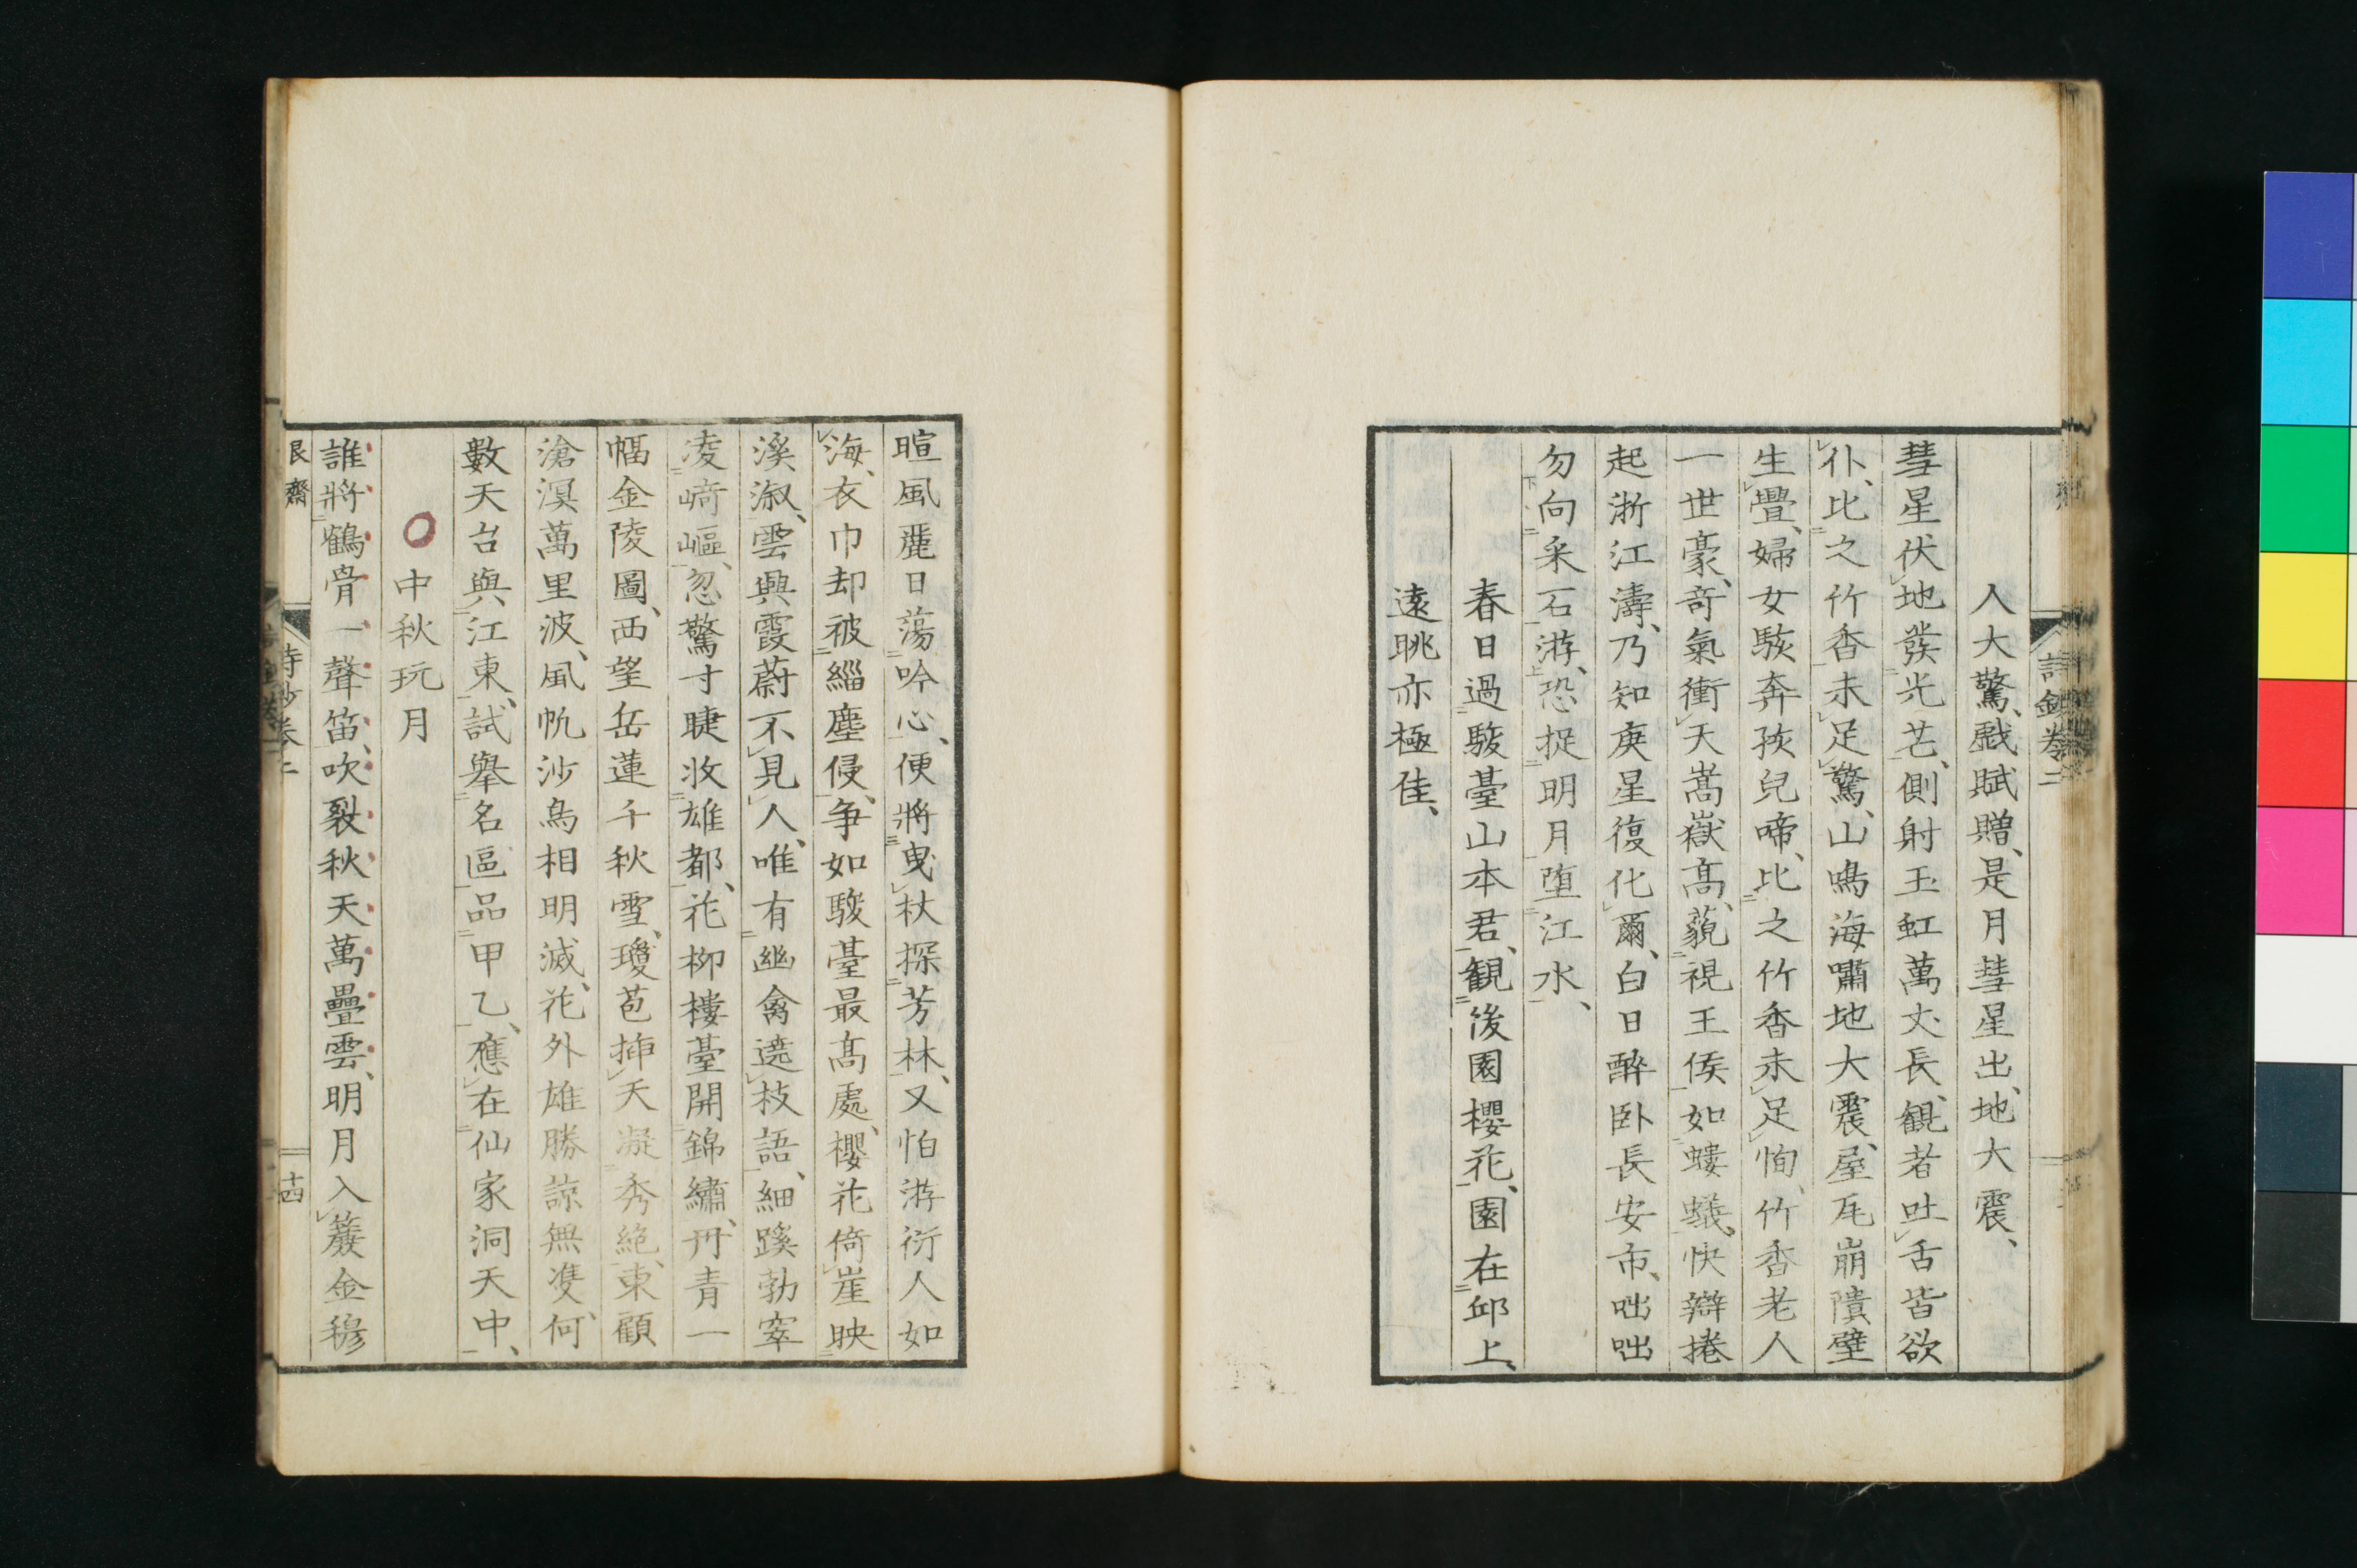 詩鈔卷二
人大驚、戲賦贈、是月彗星出、地大震、
彗星伏地發光芒、側射玉虹萬丈長、観者吐舌皆欲
仆、比之竹香未足驚、山鳴海嘯地大震、屋瓦崩隤壁
生疊、婦女駭奔孩兒啼、比之竹香未足恂、竹香老人
一世豪、奇氣衝天嵩嶽髙、藐視王侯如螻蟻、快辯捲
起浙江濤、乃知庚星復化爾、白日醉卧長安市、咄咄
勿向采石游、恐捉明月墮江水、
春日過駿臺山本君、観後園櫻花、園在邱上、
遠眺亦極佳、
暄風麗日蕩吟心、便將曳杖探芳林、又怕游衍人如
海、衣巾却被緇塵侵、争如駿臺最髙處、櫻花倚崖映
溪溆、雲興霞蔚不見人、唯有幽禽遶枝語、細蹊勃窣
凌﨑嶇、忽驚寸睫收雄都、花柳樓臺開錦繡、丹青一
幅金陵圖、西望岳蓮千秋雪、瓊苞插天凝秀絶、東顧
滄溟萬里波、風帆沙鳥相明滅、花外雄勝諒無雙、何
數天台與江東、試舉名區品甲乙、應在仙家洞天中、
中秋玩月
誰將鶴骨一聲笛、吹裂秋天萬疊雲、明月入簾金穆
艮齋
詩鈔卷二
十四